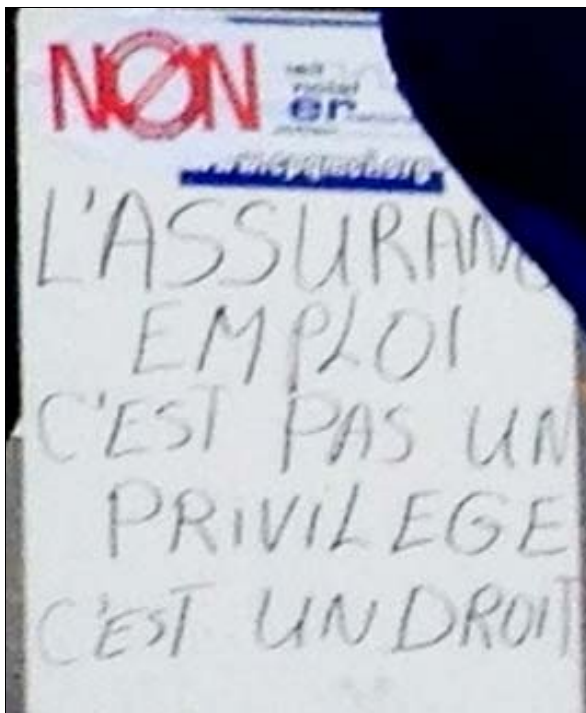 NON
er
L'ASSURANC
EMPLOI
C'EST PAS UN
PRIVILEGE
C'EST UN DROIT